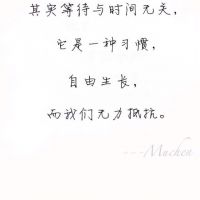 其实等待与时间无关，
它是一种习惯，
自由生长，
而我们无力抵抗。
---Muchen